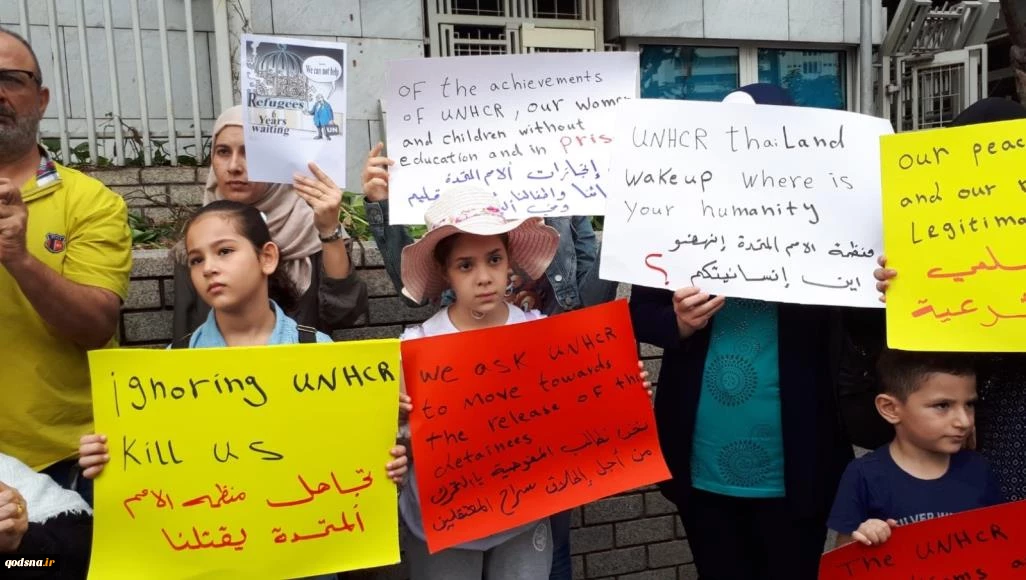 We can not help
Refugees
6
Years
waiting
UN
OF the achievements
OF UNHCR, our women
and children without
education and in pris
إنجازات الأمم المتحدة
UNHCR thaiLand
wakeup where is
your humanity
منظمة الامم المتحدة إنهضو
اين إنسانيتكم ؟
our peac
and our r
Legitima
سلمي
رعية
ignoring UNHCR
kill us
تجاهل منظمه الامم
المتحدة يقتلنا
we ask UNHCR
to move towards
the release of the
detainees
نحن نطالب المفوضية بالتحرك
من أجل إطلاق سراح المعتقلين
The UNHCR
SILVER
qodsna.ir